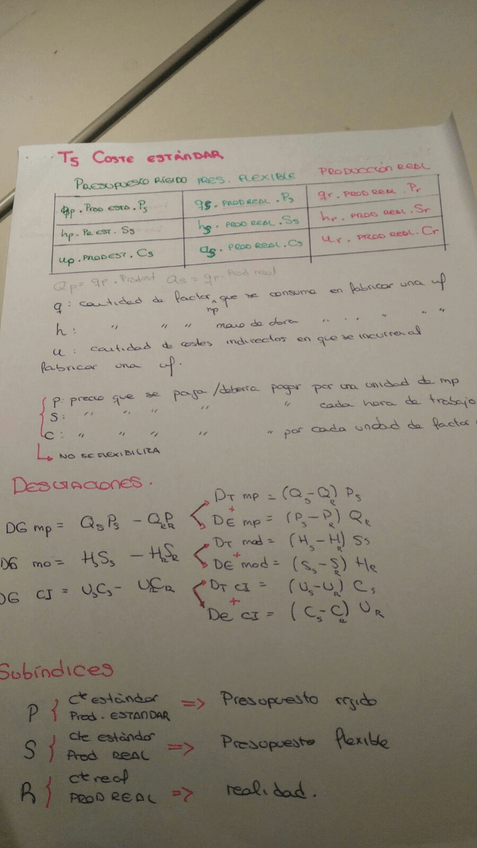 T5 COSTE ESTÁNDAR
PRESUPUESTO RÍGIDO PRES. FLEXIBLE PRODUCCIÓN REAL
qp. PROD ESTA. Ps qs. PROD REAL. Ps qr. PROD REAL. Pr
hp. Pr EST. Ss hs. PROD REAL. Ss hr. PROD REAL. Sr
up. PROD EST. Cs as. PROD REAL. Cs ur. PROD REAL. Cr
Qp = qp. Prod est Qs = qr. Prod real
q: cantidad de factor mp que se consume en fabricar una uf
h: " " " mano de obra " " " " "
u: cantidad de costes indirectos en que se incurrera al
fabricar una uf.
P: precio que se paga/debería pagar por una unidad de mp
S: " " " " " cada hora de trabajo
C: " " " " " por cada unidad de factor
↳ NO SE FLEXIBILIZA
DESVIACIONES.
DG mp = QsPs - QRPR
DT mp = (Qs-QR) Ps
+
DE mp = (Ps-PR) QR
DG mo = HsSs - HRSR
DT mod = (Hs-HR) Ss
+
DE mod = (Ss-SR) HR
DG CI = UsCs - URCR
DT CI = (Us-UR) Cs
+
DE CI = (Cs-CR) UR
Subíndices
P { Cte estándar
Prod. ESTANDAR => Presupuesto rígido
S { Cte estándar
Prod REAL => Presupuesto flexible
R { cte real
PROD REAL => realidad.